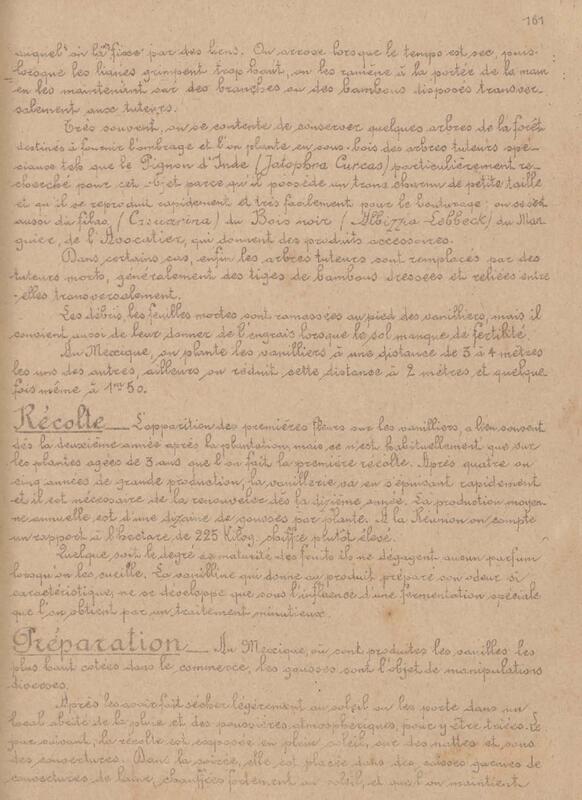 161
auquel on la fixe par des liens. On arrose lorsque le temps est sec, puis
lorsque les lianes grimpent trop haut, on les ramène à la portée de la main
en les maintenant sur des branches ou des bambous disposés transver-
salement aux tuteurs.
Très souvent, on se contente de conserver quelques arbres de la forêt
destinés à fournir l'ombrage et l'on plante en sous-bois des arbres tuteurs spé-
ciaux tels que le Pignon d'Inde (Jatophra Curcas) particulièrement re-
cherché pour cet objet parce qu'il possède un tronc charnu de petite taille
et qu'il se reproduit rapidement et très facilement pour le bouturage; on se sert
aussi du filao, (Casuarina) du Bois noir (Albizzia-Lebbeck) du Man-
guier, de l'Avocatier, qui donnent des produits accessoires.
Dans certains cas, enfin les arbres tuteurs sont remplacés par des
tuteurs morts, généralement des tiges de bambous dressées et reliées entre
elles transversalement.
Les débris, les feuilles mortes sont ramassées au pied des vanilliers, mais il
convient aussi de leur donner de l'engrais lorsque le sol manque de fertilité.
Au Mexique, on plante les vanilliers à une distance de 3 à 4 mètres
les uns des autres, ailleurs on réduit cette distance à 2 mètres, et quelque
fois même à 1m50.
Récolte _ L'apparition des premières fleurs sur les vanilliers, a lieu souvent
dès la deuxième année après la plantation, mais ce n'est habituellement que sur
les plantes agées de 3 ans que l'on fait la première récolte. Après quatre ou
cinq années de grande production, la vanillerie va en s'épuisant rapidement
et il est nécessaire de la renouveler dès la dixième année. La production moyen-
ne annuelle est d'une dizaine de gousses par plante. A la Réunion on compte
un rapport à l'hectare de 225 Kilog. chiffre plutôt élevé.
Quelque soit le degré de maturité des fruits ils ne dégagent aucun parfum
lorsqu'on les cueille. La vanilline qui donne au produit préparé son odeur si
caractéristique, ne se développe que sous l'influence d'une fermentation spéciale
que l'on obtient par un traitement minutieux.
Préparation _ Au Mexique, où sont produites les vanilles les
plus haut cotées dans le commerce, les gousses sont l'objet de manipulations
diverses.
Après les avoir fait sécher légèrement au soleil on les porte dans un
local abrité de la pluie et des poussières atmosphériques, pour y être triées. Le
jour suivant, la récolte est exposée en plein soleil, sur des nattes et sous
des couvertures. Dans la soirée, elle est placée dans des caisses garnies de
couvertures de laine, chauffées fortement au soleil, et que l'on maintient